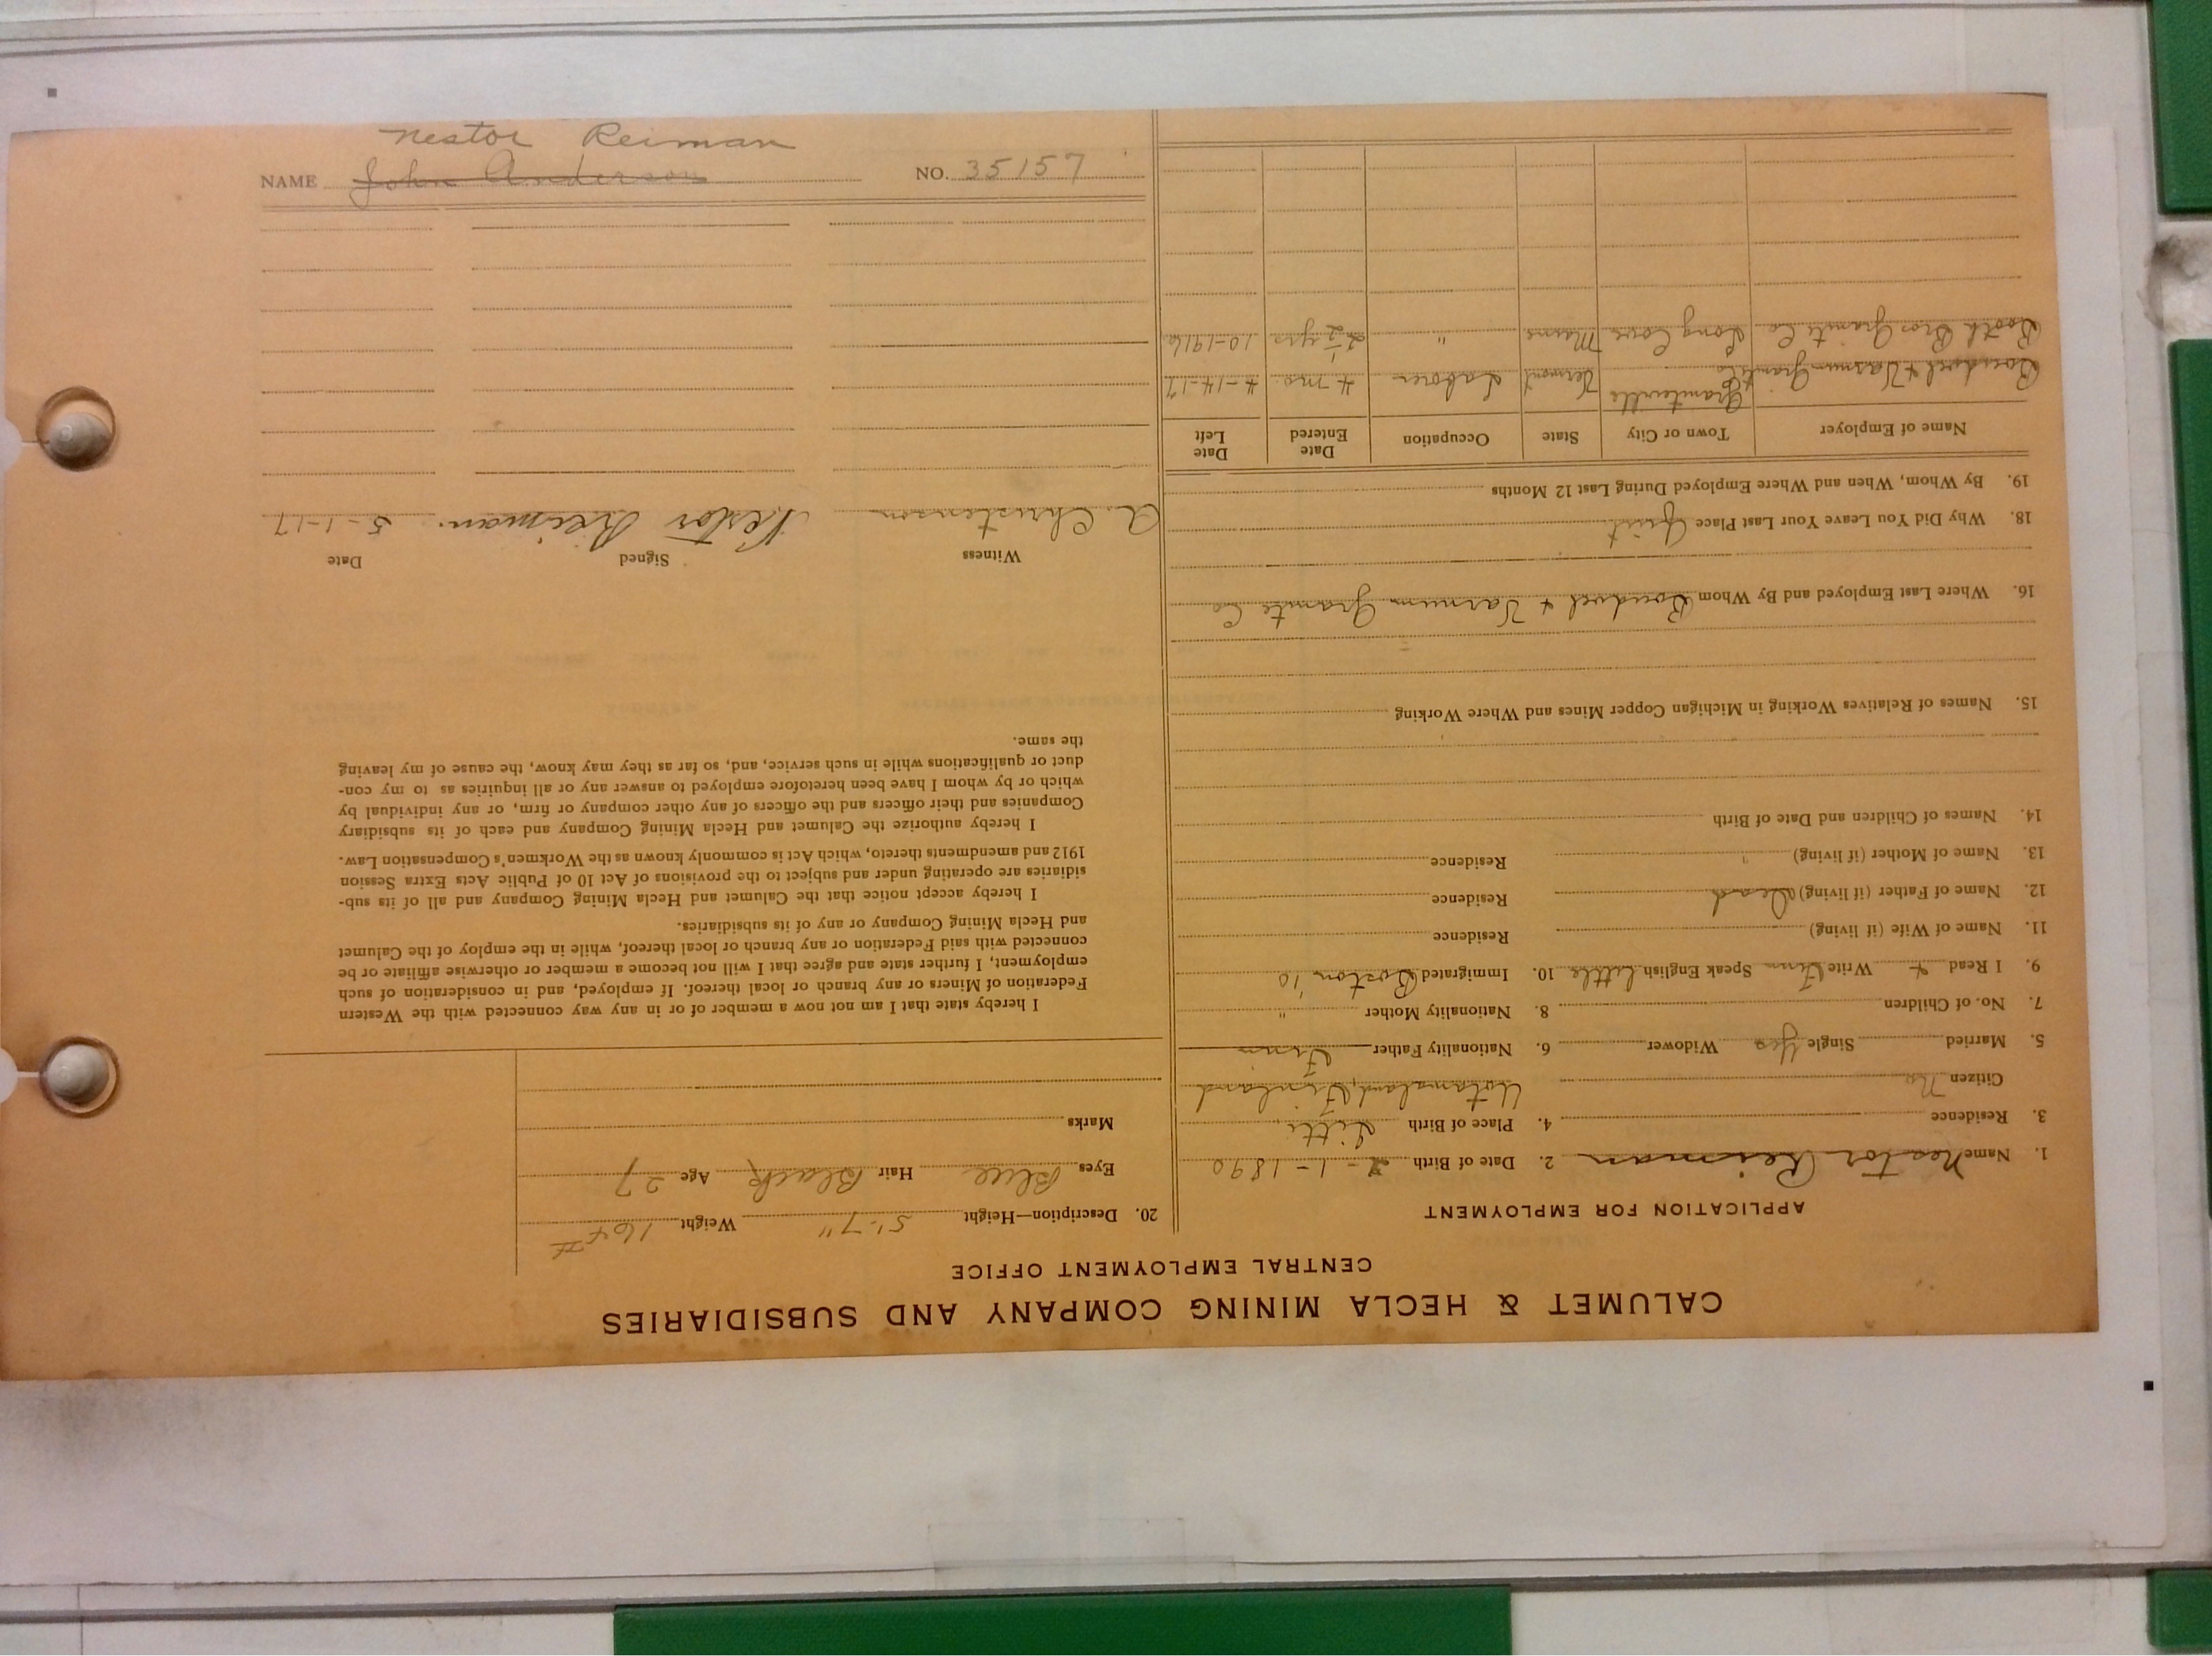 Nestor Reiman
NAME John Anderson NO. 35157
CALUMET & HECLA MINING COMPANY AND SUBSIDIARIES
CENTRAL EMPLOYMENT OFFICE
APPLICATION FOR EMPLOYMENT
1. Name Nestor Reiman 2. Date of Birth 2-1-1890
3. Residence 4. Place of Birth Litti
Citizen No Finland
5. Married Single Yes Widower 6. Nationality Father Finn
7. No. of Children 8. Nationality Mother "
9. I Read + Write Finn Speak English Little 10. Immigrated Boston '10
11. Name of Wife (if living) Residence
12. Name of Father (if living) Dead Residence
13. Name of Mother (if living) " Residence
14. Names of Children and Date of Birth
15. Names of Relatives Working in Michigan Copper Mines and Where Working
16. Where Last Employed and By Whom & Varnum Granite Co
18. Why Did You Leave Your Last Place Quit
19. By Whom, When and Where Employed During Last 12 Months
Name of Employer Town or City State Occupation Date Entered Date Left
& Varnum Granite Co Graniteville Vermont Laborer 4 mo. 4-14-17
Booth Bros Granite Co Long Cove Maine " 2 1/2 yrs 10-1916
20. Description—Height 5'-7" Weight 164 #
Eyes Blue Hair Black Age 27
Marks
I hereby state that I am not now a member of or in any way connected with the Western
Federation of Miners or any branch or local thereof. If employed, and in consideration of such
employment, I further state and agree that I will not become a member or otherwise affiliate or be
connected with said Federation or any branch or local thereof, while in the employ of the Calumet
and Hecla Mining Company or any of its subsidiaries.
I hereby accept notice that the Calumet and Hecla Mining Company and all of its sub-
sidiaries are operating under and subject to the provisions of Act 10 of Public Acts Extra Session
1912 and amendments thereto, which Act is commonly known as the Workmen's Compensation Law.
I hereby authorize the Calumet and Hecla Mining Company and each of its subsidiary
Companies and their officers and the officers of any other company or firm, or any individual by
which or by whom I have been heretofore employed to answer any or all inquiries as to my con-
duct or qualifications while in such service, and, so far as they may know, the cause of my leaving
the same.
Witness Signed Date
A. Christenson Nestor Reiman. 5-1-17